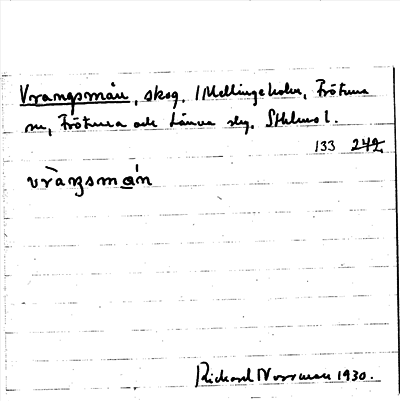 Vrangsmån, skog, / Mellingeholm, Frötuna
sn, Frötuna och Länna slg. Sthlms l.
133 242
vràŋsmán
Richard Norrman 1930.